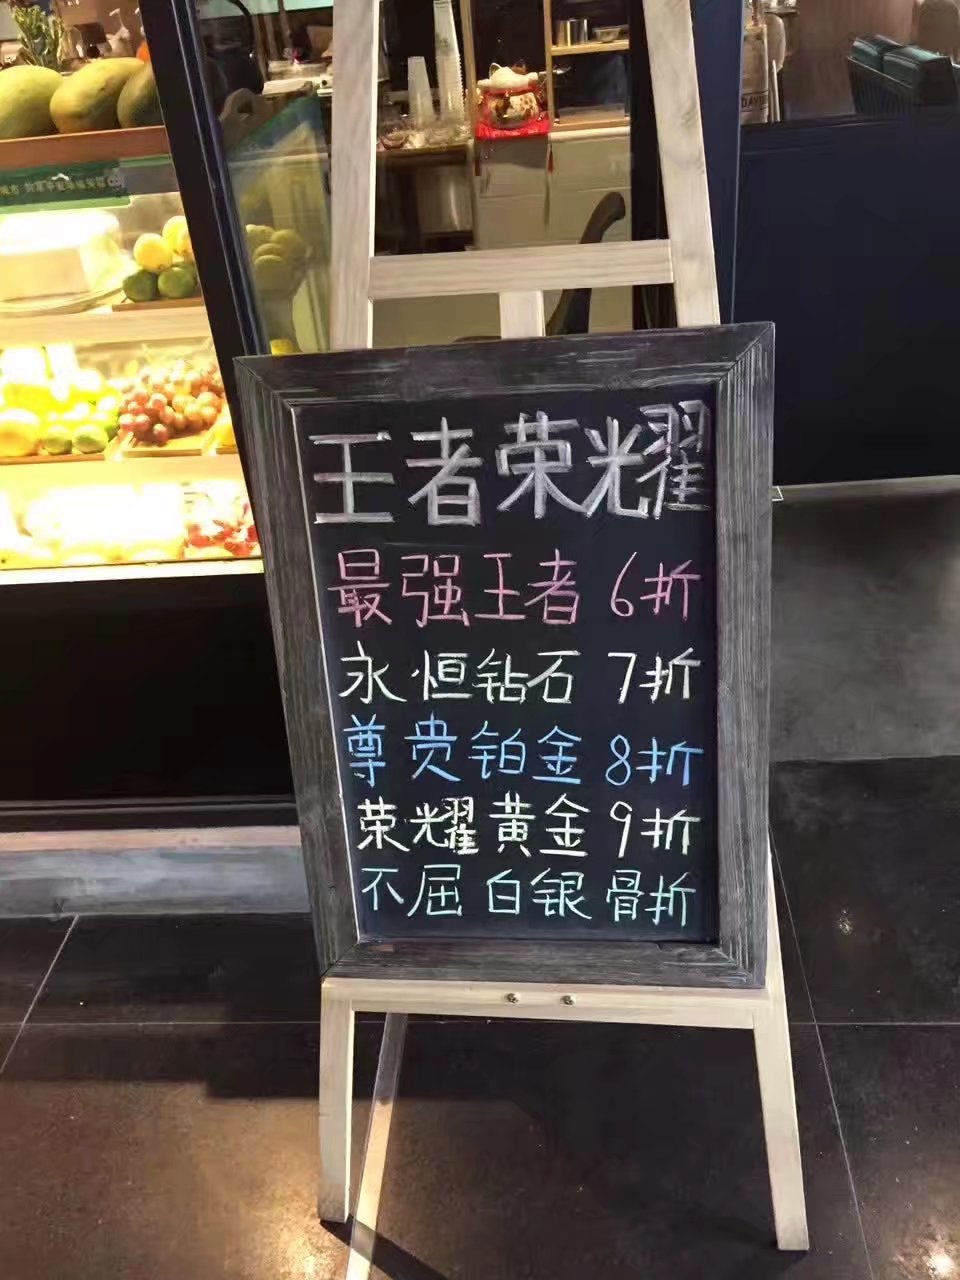 王者荣耀
最强王者 6折
永恒钻石 7折
尊贵铂金 8折
荣耀黄金 9折
不屈白银 骨折